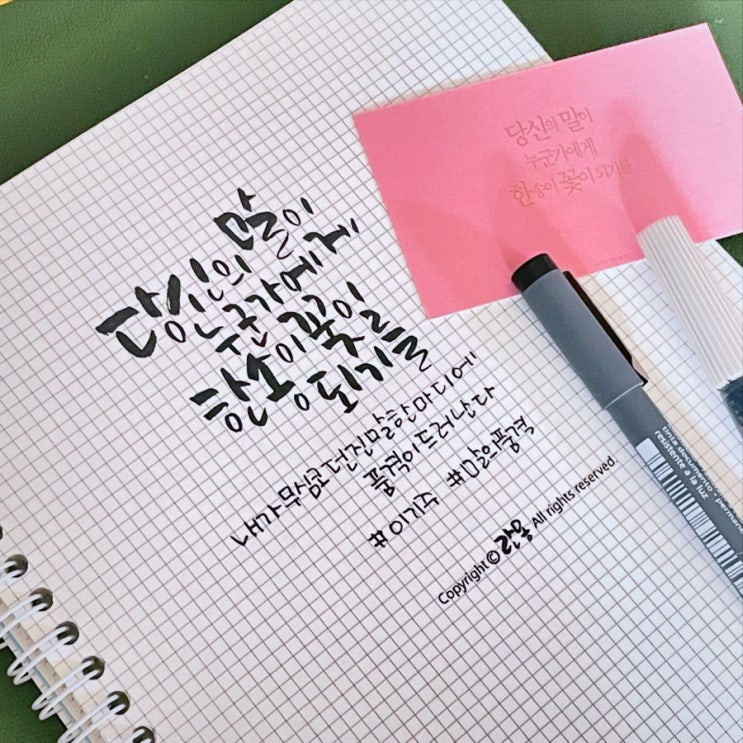 당신의 말이
누군가에게
한송이 꽃이
되기를
내가 무심코 던진 말 한마디에
품격이 드러난다
#이기주 #말의품격
Copyright © All rights reserved.
당신의 말이
누군가에게
한송이 꽃이 되기를
tinta documento - permane
resistente a la luz